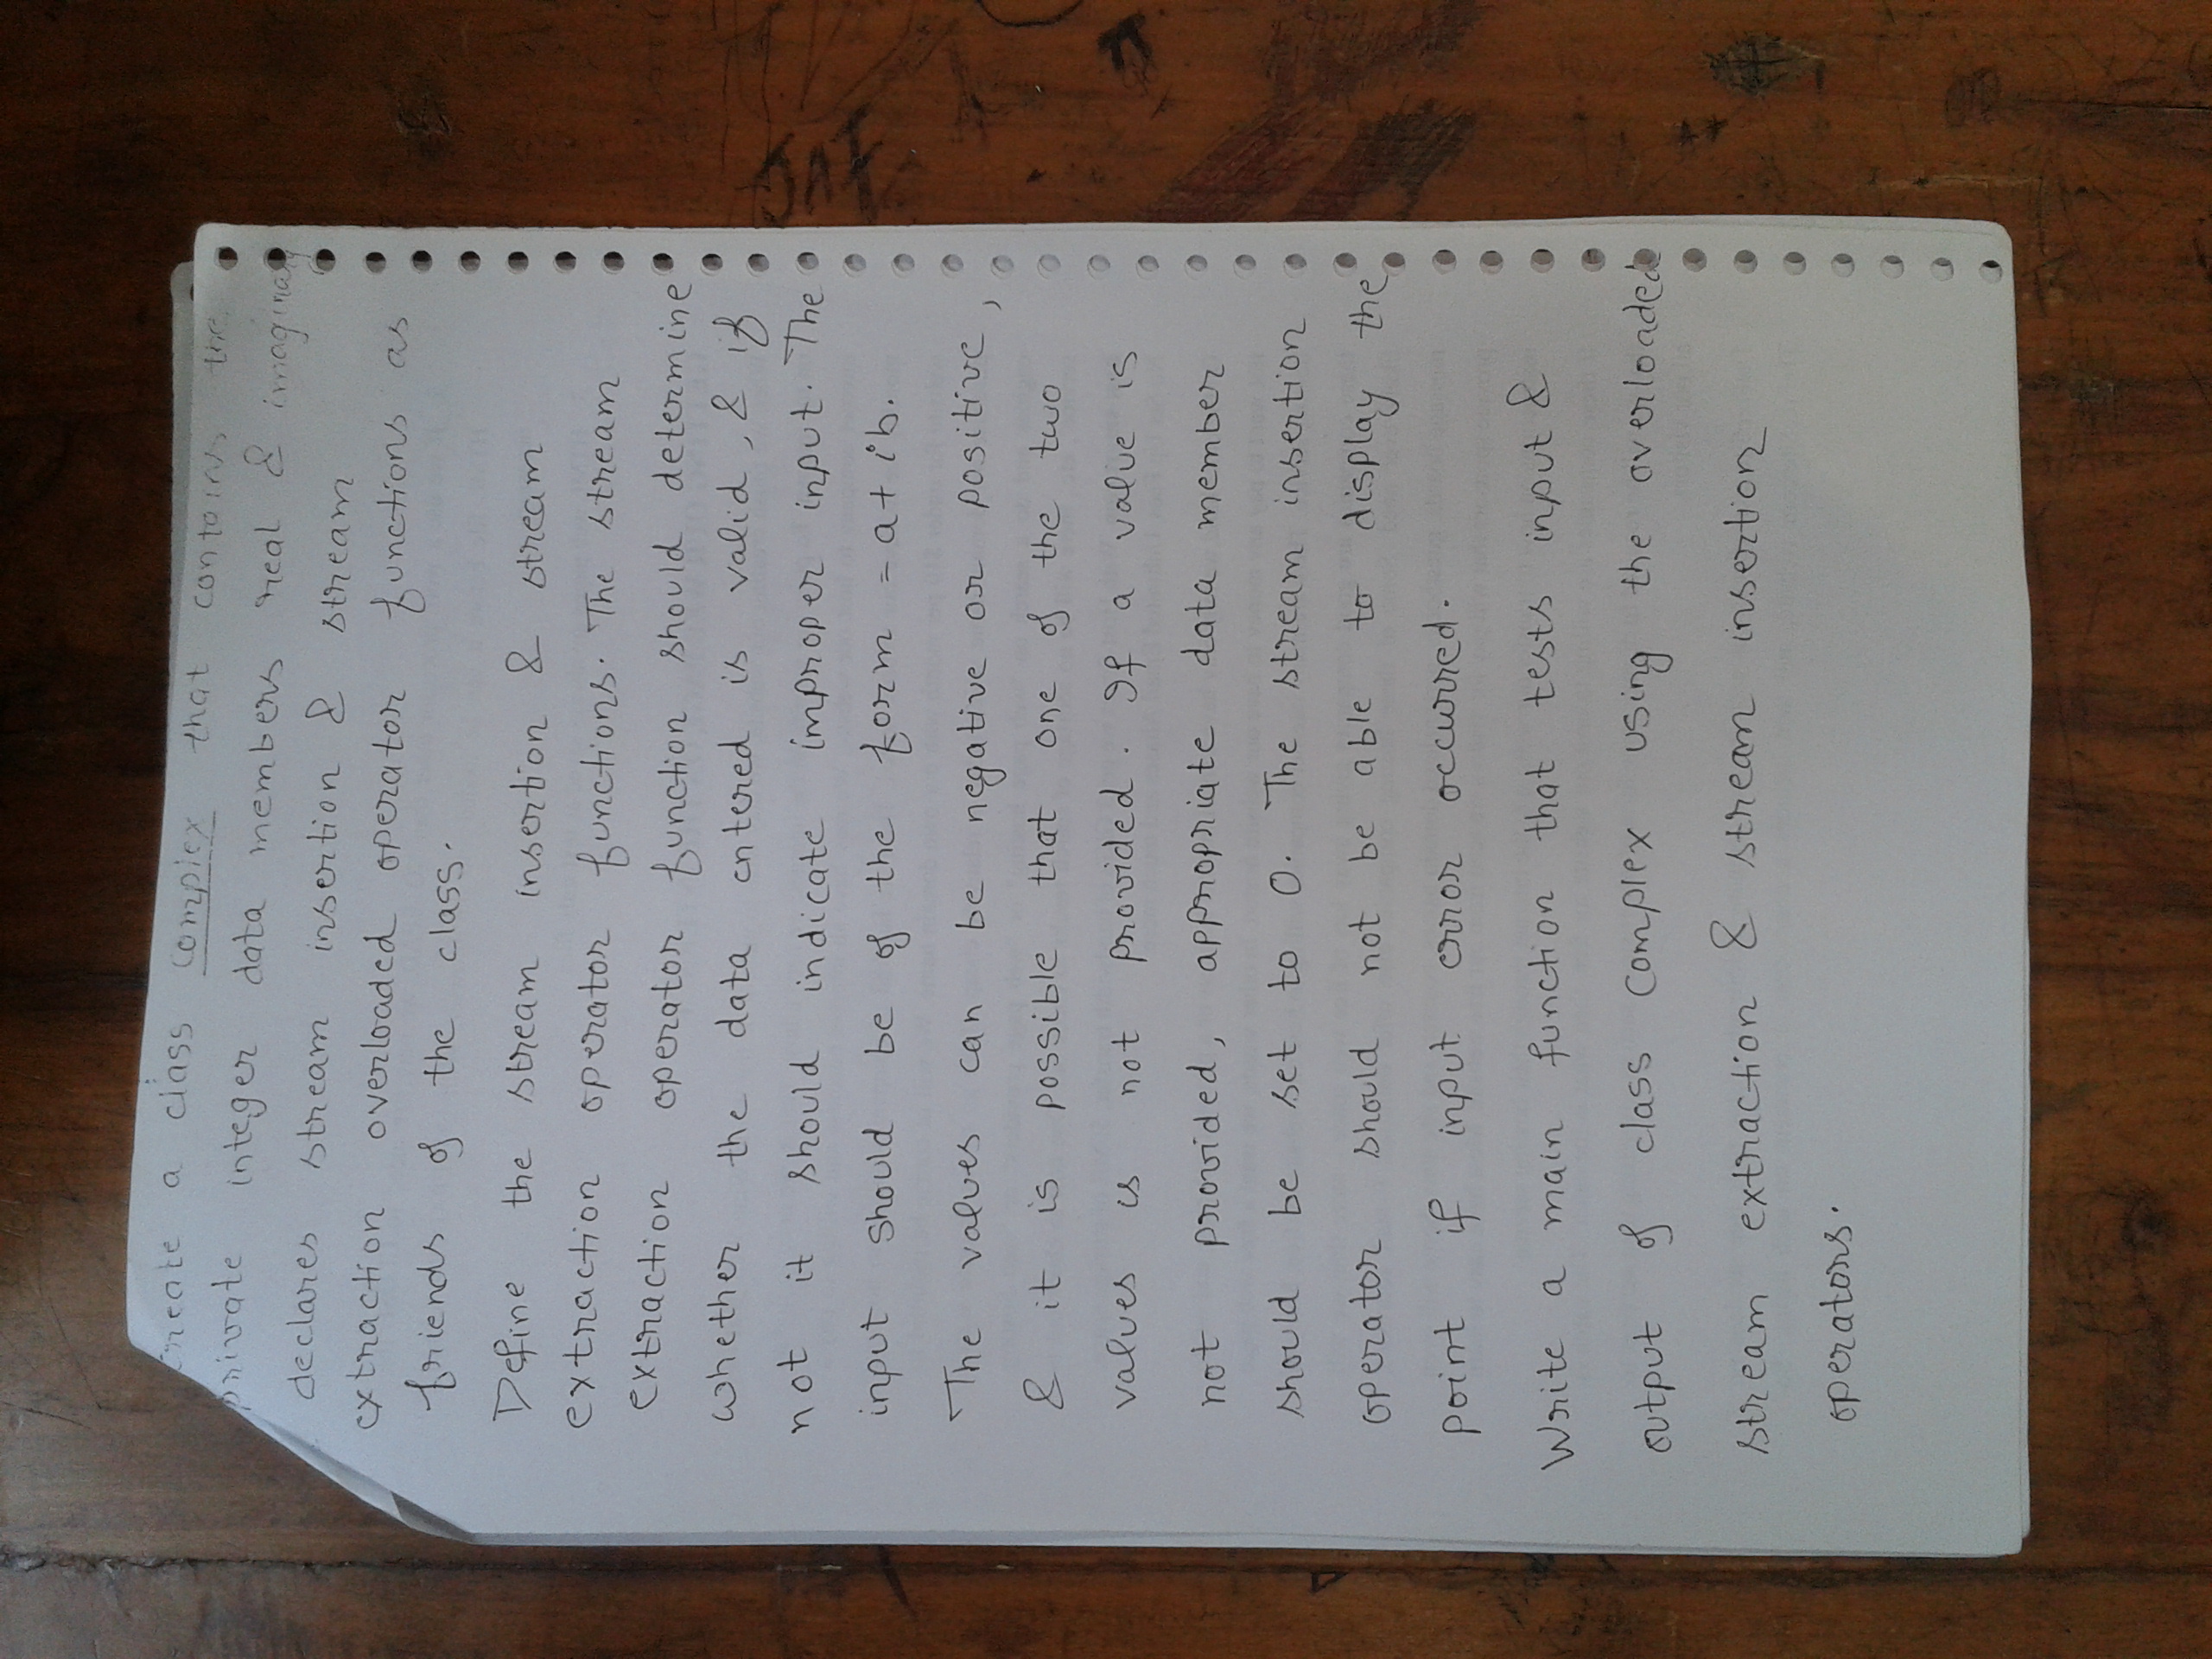 Create a class complex that contains the
private integer data members real & imaginary
declares stream insertion & stream
extraction overloaded operator functions as
friends of the class.
Define the stream insertion & stream
extraction operator functions. The stream
extraction operator function should determine
whether the data entered is valid, & if
not it should indicate improper input. The
input should be of the form = a+ib.
The values can be negative or positive,
& it is possible that one of the two
values is not provided. If a value is
not provided, appropriate data member
should be set to 0. The stream insertion
operator should not be able to display the
point if input error occurred.
Write a main function that tests input &
output of class complex using the overloaded
stream extraction & stream insertion
operators.